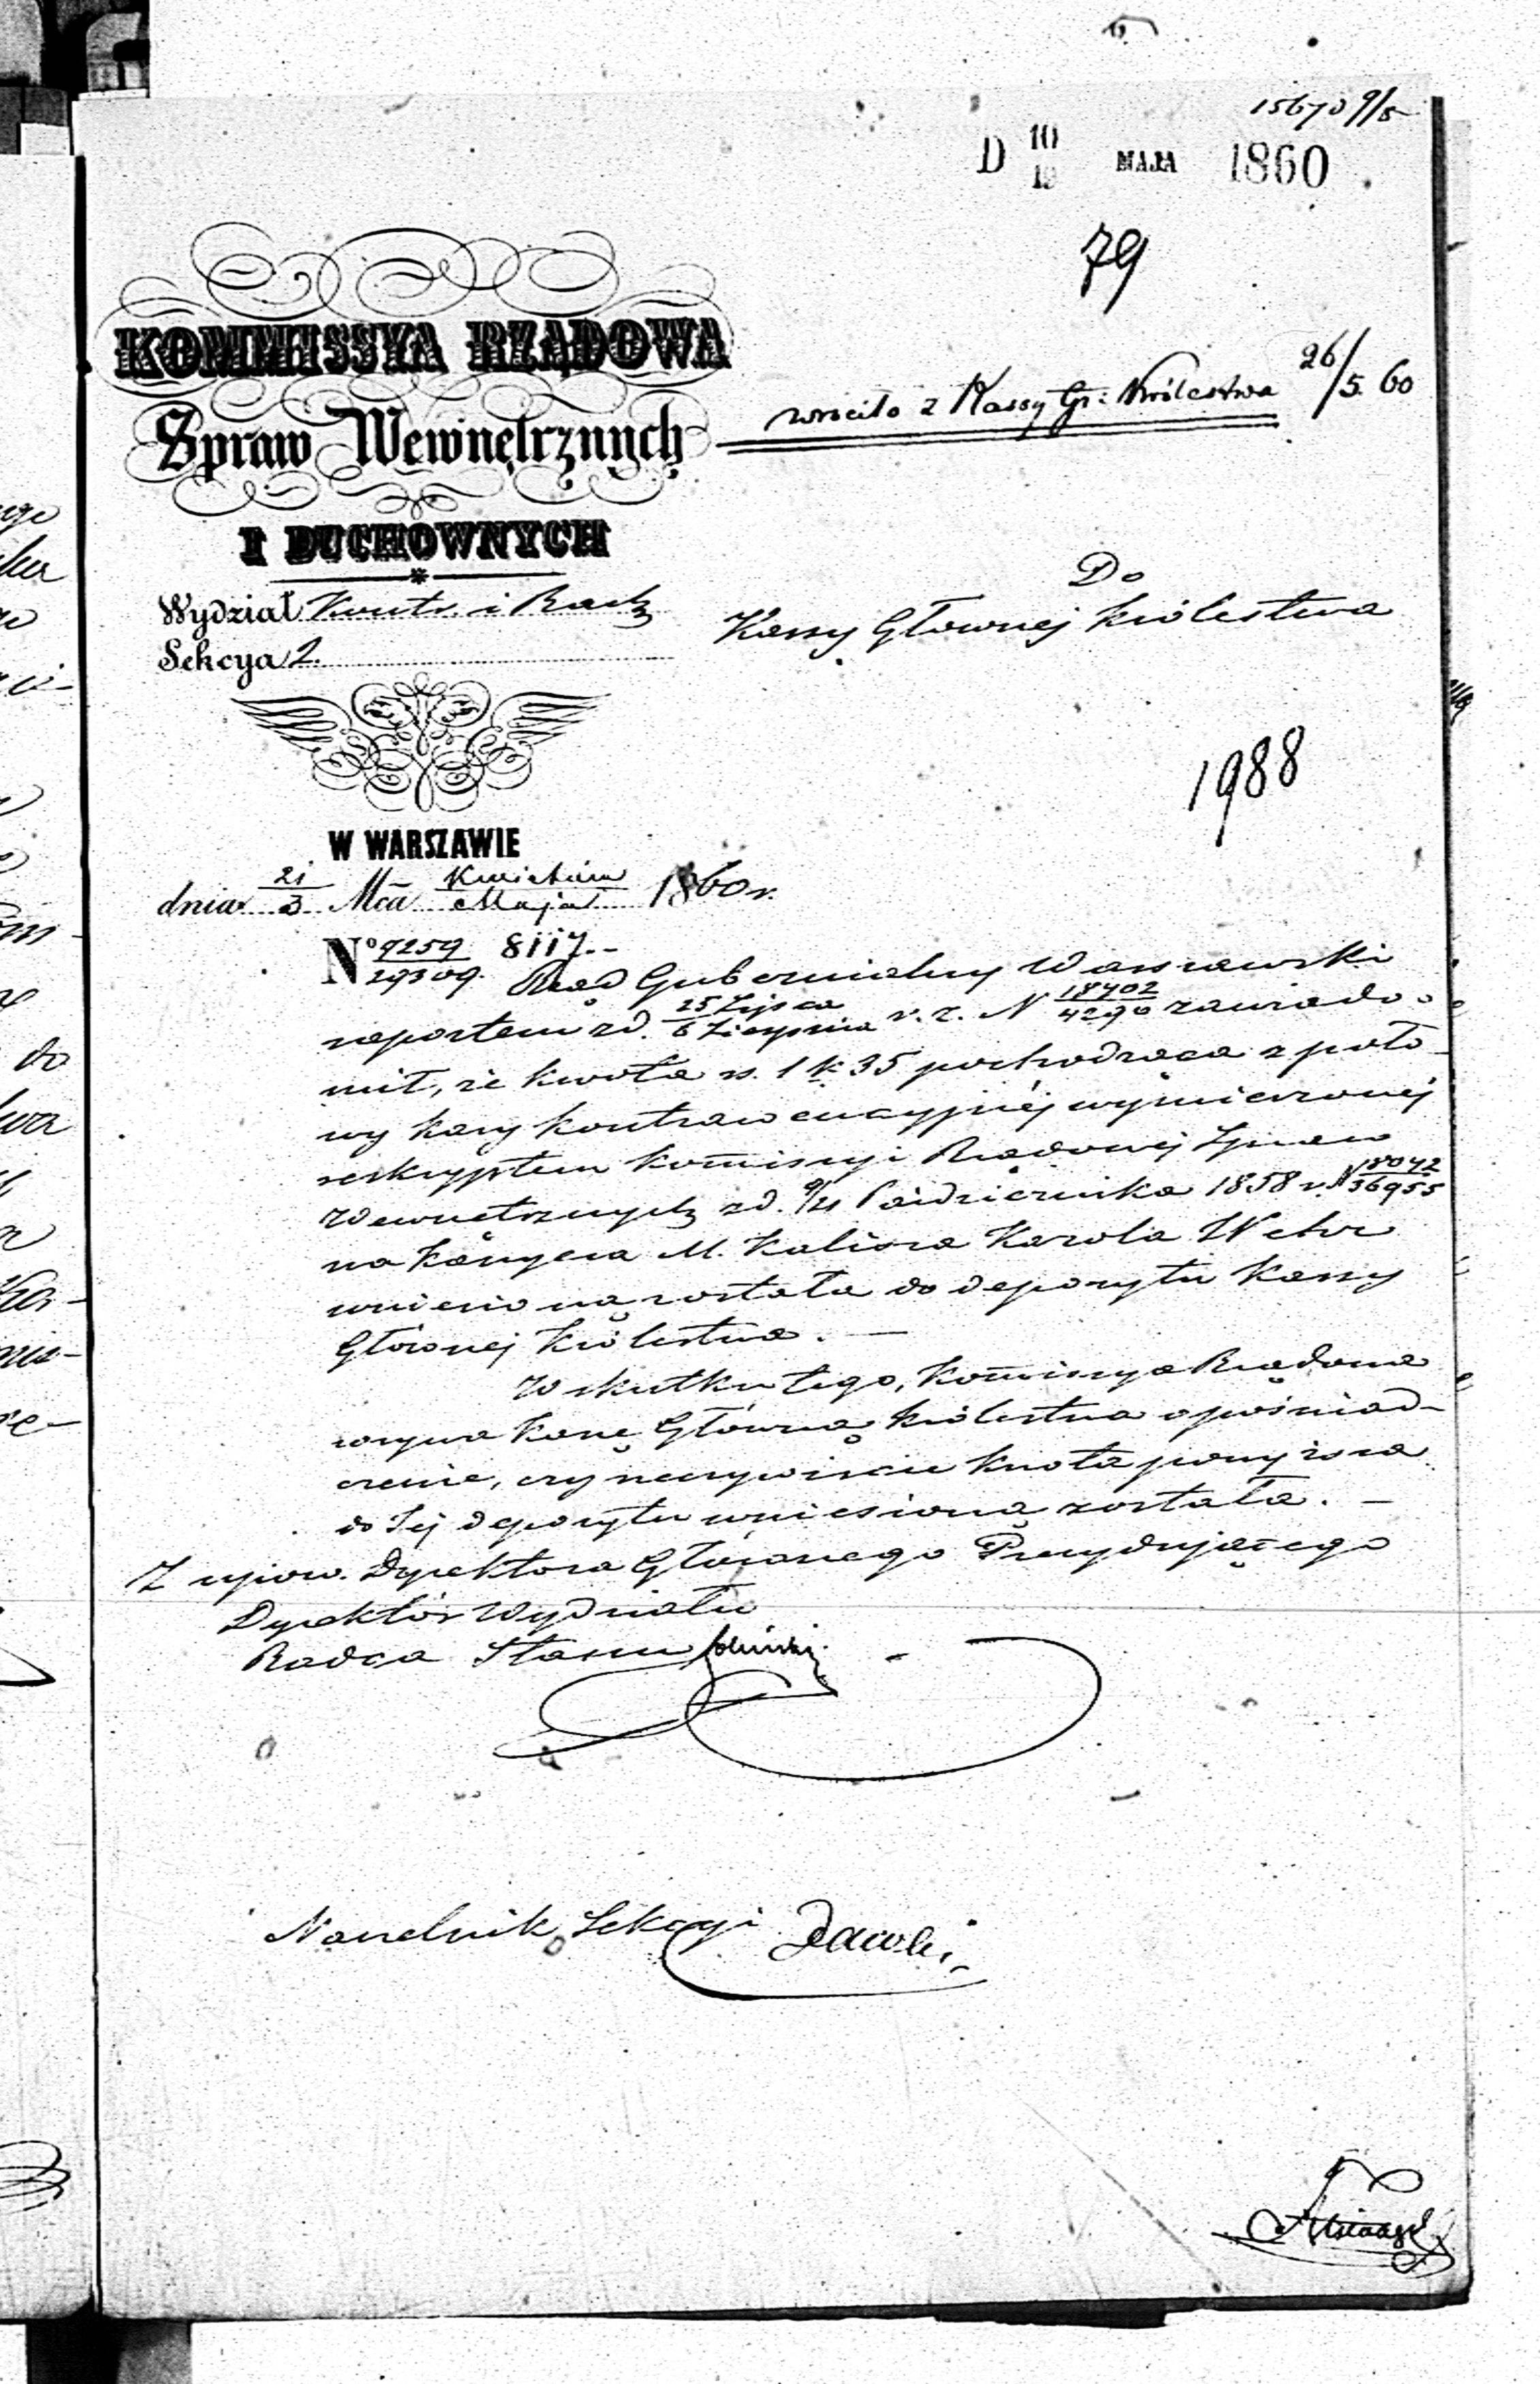 15670 9/5
D 10/19 MAJA 1860
79
KOMMISSYA RZĄDOWA
Spraw Wewnętrznych
I DUCHOWNYCH
wróciło z Kassy Gł: Królestwa 26/5 60
Wydział Kontr. i Rach
Sekcya 2.
Do
Kassy Głownej Królestwa
1988
W WARSZAWIE
dnia 21/3 Mca Kwietnia/Maja 1860 r.
No 9259/29309. 8117.-
Rząd Gubernialny Warszawski
raportem z d. 25 Lipca/6 Sierpnia r. z. N 18702/4290 zawiado-
mił, że kwota rs. 1 k 35 pochodząca z poło-
wy kary kontrawencyjnéj wymierzonéj
reskryptem Kom̄issyi Rządowéj Spraw
Wewnętrznych z d. 9/21 Października 1858 r. N 18042/36955
na Ławnika M. Kalisza Karola
wniesioną została do depozytu Kassy
Głównéj Królestwa. —
W skutku tego, Kom̄issya Rządowa
wzywa Kassę Główną Królestwa o poświad-
czenie, czy rzeczywiście kwota powyższa
do Jéj depozytu wniesioną została. —
Z upow. Dyrektora Głównego Prezydującego
Dyrektór Wydziału
Radca Stanu
Naczelnik Sekcyi